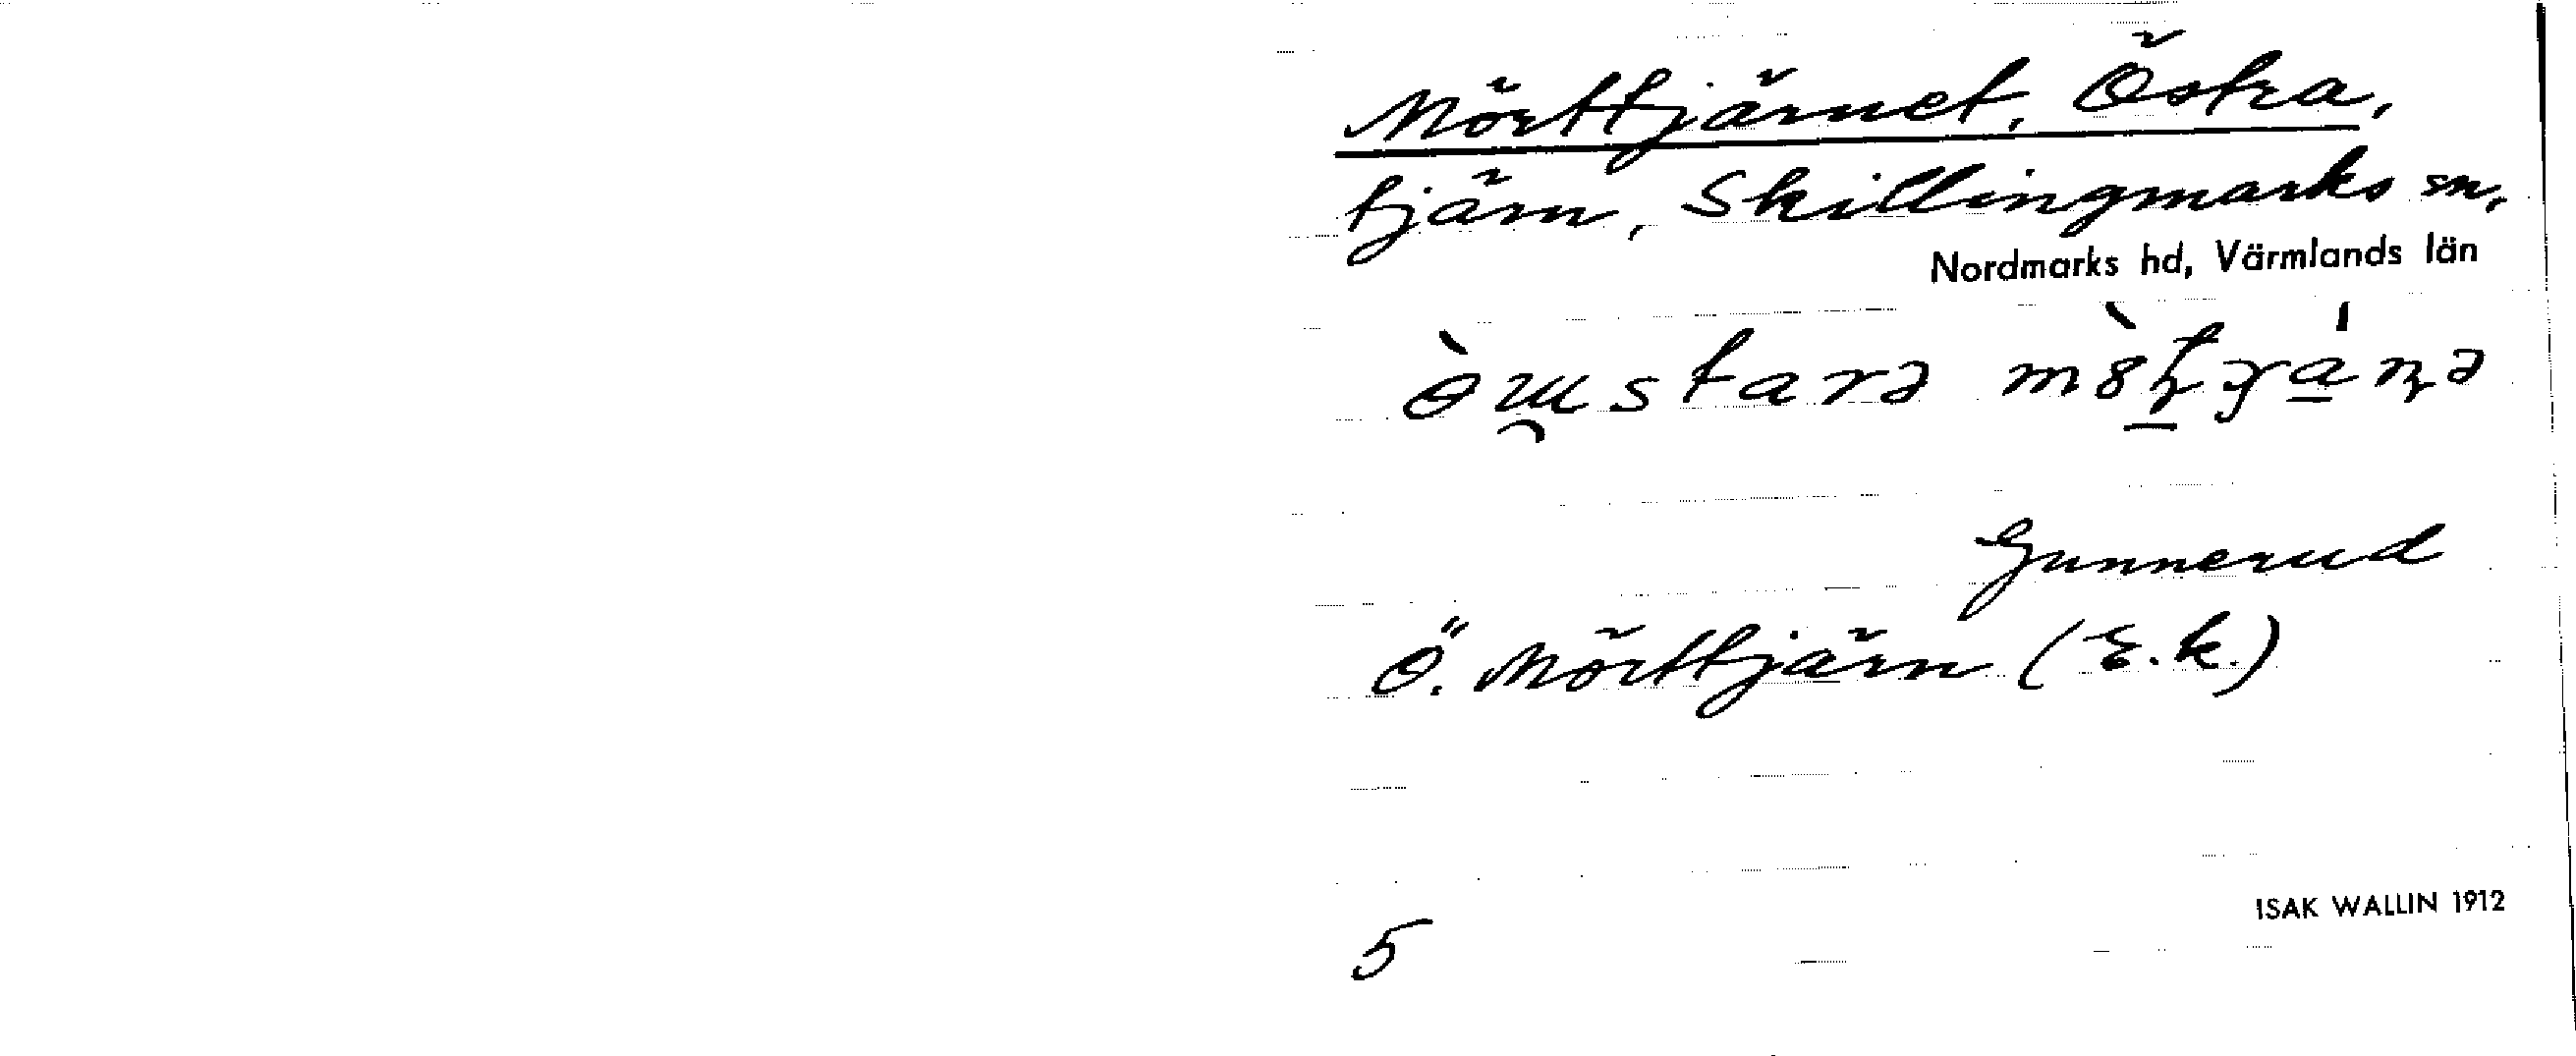 Mörttjärnet, Östra,
tjärn, Skillingmarks sn,
Nordmarks hd, Värmlands län
Gunnerud
Ö. Mörttjärn (E.k.)
ISAK WALLIN 1912
5